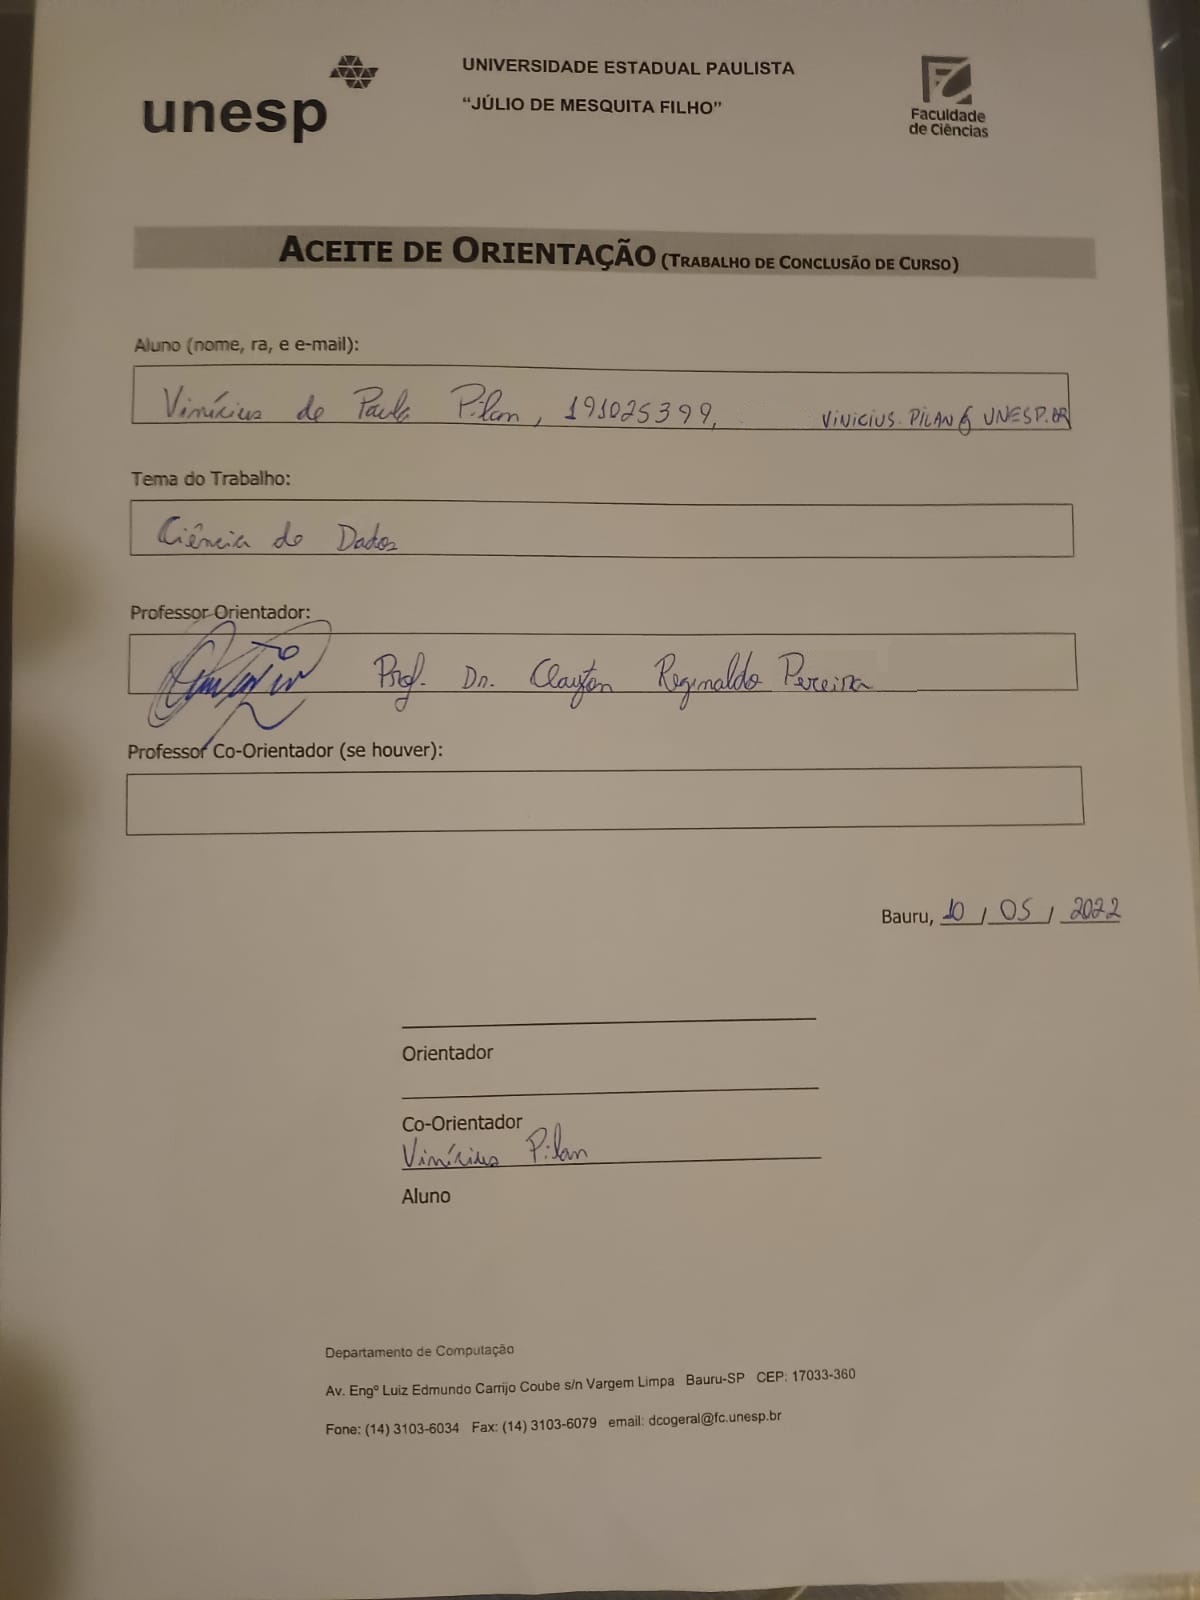 unesp
UNIVERSIDADE ESTADUAL PAULISTA
“JÚLIO DE MESQUITA FILHO”
Faculdade
de Ciências
ACEITE DE ORIENTAÇÃO (TRABALHO DE CONCLUSÃO DE CURSO)
Aluno (nome, ra, e e-mail):
Vinícius de Paula Pilan, 191025399, VINICIUS.PILAN@UNESP.BR
Tema do Trabalho:
Ciência de Dados
Professor Orientador:
Prof. Dr. Clayton Reginaldo Pereira
Professor Co-Orientador (se houver):
Bauru, 10 / 05 / 2022
Orientador
Co-Orientador
Vinícius Pilan
Aluno
Departamento de Computação
Av. Engº Luiz Edmundo Carrijo Coube s/n Vargem Limpa Bauru-SP CEP: 17033-360
Fone: (14) 3103-6034 Fax: (14) 3103-6079 email: dcogeral@fc.unesp.br